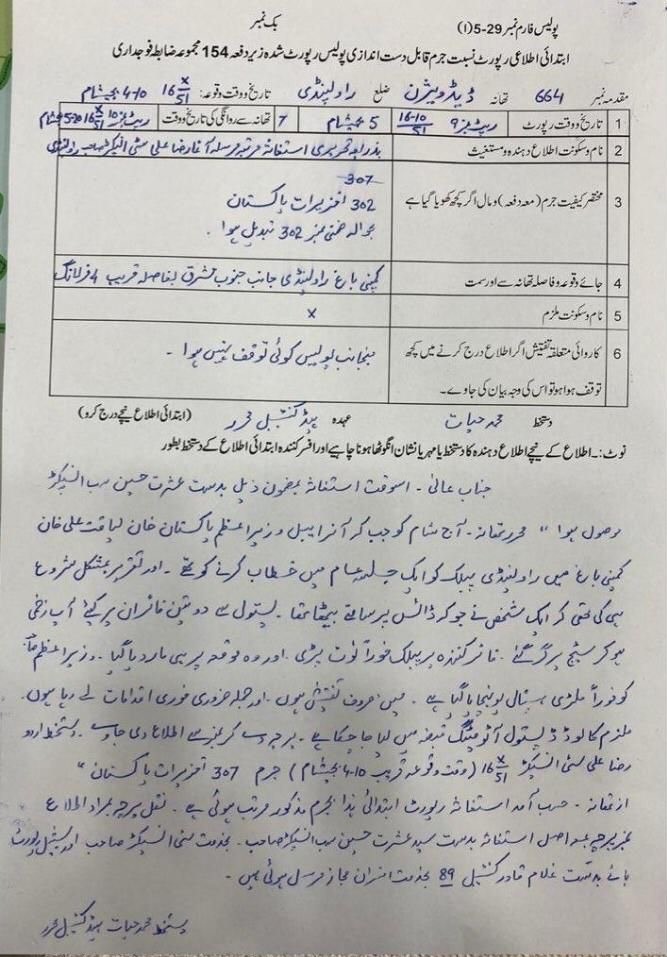 بک نمبر
پولیس فارم نمبر 29-5 (۱)
ابتدائی اطلاعی رپورٹ نسبت جرم قابل دست اندازی پولیس رپورٹ شدہ زیر دفعہ 154 مجموعہ ضابطہ فوجداری
مقدمہ نمبر 664 تھانہ ڈیڈویژن ضلع راولپنڈی تاریخ و وقت وقوعہ: 16 X/51 4-10 بجے شام
1 تاریخ و وقت رپورٹ 16-10/51 5 بجے شام 7 تھانہ سے روانگی کی تاریخ و وقت
2 نام و سکونت اطلاع دہندہ و مستغیث بذریعہ تحریری استغاثہ مرتبہ مرسلہ آغا رضا علی سٹی انسپکٹر صاحب راولپنڈی
3 مختصر کیفیت جرم (معہ دفعہ) و مال اگر کچھ کھویا گیا ہے
307
302 تعزیرات پاکستان
بحوالہ ضمنی نمبر 302 تبدیل ہوا۔
4 جائے وقوعہ و فاصلہ تھانہ سے اور سمت کمپنی باغ راولپنڈی جانب جنوب مشرق بفاصلہ قریب 4 فرلانگ
5 نام و سکونت ملزم x
6 کاروائی متعلقہ تفتیش اگر اطلاع درج کرنے میں کچھ توقف ہوا ہو تو اس کی وجہ بیان کی جاوے۔ منجانب پولیس کوئی توقف نہیں ہوا۔
دستخط محمد حیات عہدہ ہیڈ کنسٹیبل محرر (ابتدائی اطلاع نیچے درج کرو)
نوٹ:۔ اطلاع کے نیچے اطلاع دہندہ کا دستخط یا مہر یا نشان انگوٹھا ہونا چاہیے اور افسر کنندہ ابتدائی اطلاع کے دستخط بطور
جناب عالی۔ اسوقت استغاثہ بمضمون ذیل بدست عشرت حسین سب انسپکٹر
موصول ہوا " محرر تھانہ۔ آج شام کو جب کہ آنرایبل وزیراعظم پاکستان خان لیاقت علی خان
کمپنی باغ میں راولپنڈی پبلک کو ایک جلسہ عام میں خطاب کرنے کو تھے۔ اور تقریر بمشکل شروع
ہی کی تھی کہ ایک شخص نے جو کہ ڈائس پر سامنے بیٹھا تھا۔ پستول سے دو تین فائر ان پر کیے آپ زخمی
ہو کر سٹیج پر گر گئے۔ فائر کنندہ پر پبلک فوراً ٹوٹ پڑی۔ اور وہ موقعہ پر ہی مار دیا گیا۔ وزیراعظم صاحب
کو فوراً ملٹری ہسپتال پہنچایا گیا ہے۔ میں مصروف تفتیش ہوں۔ اور جملہ ضروری فوری اقدامات لے رہا ہوں۔
ملزم کا لوڈڈ پستول آٹومیٹک قبضہ میں لیا جا چکا ہے۔ پرچہ دے کر نمبر سے اطلاع دی جاوے۔ دستخط اردو
رضا علی سٹی انسپکٹر 16 X/51 (وقت وقوعہ قریب 4-10 بجے شام) جرم 307 تعزیرات پاکستان"
از تھانہ۔ حسب آمد استغاثہ رپورٹ ابتدائی ہذا بجرم مذکور مرتب ہوئی ہے۔ نقل پرچہ بمراد اطلاع
نمبر پرچہ بمعہ اصل استغاثہ بدست سید عشرت حسین سب انسپکٹر صاحب۔ بخدمت سٹی انسپکٹر صاحب اور سپیشل رپورٹ
ہائے بدست غلام قادر کنسٹیبل 89 بخدمت افسران مجاز مرسل ہوئی ہیں۔
دستخط محمد حیات ہیڈ کنسٹیبل محرر